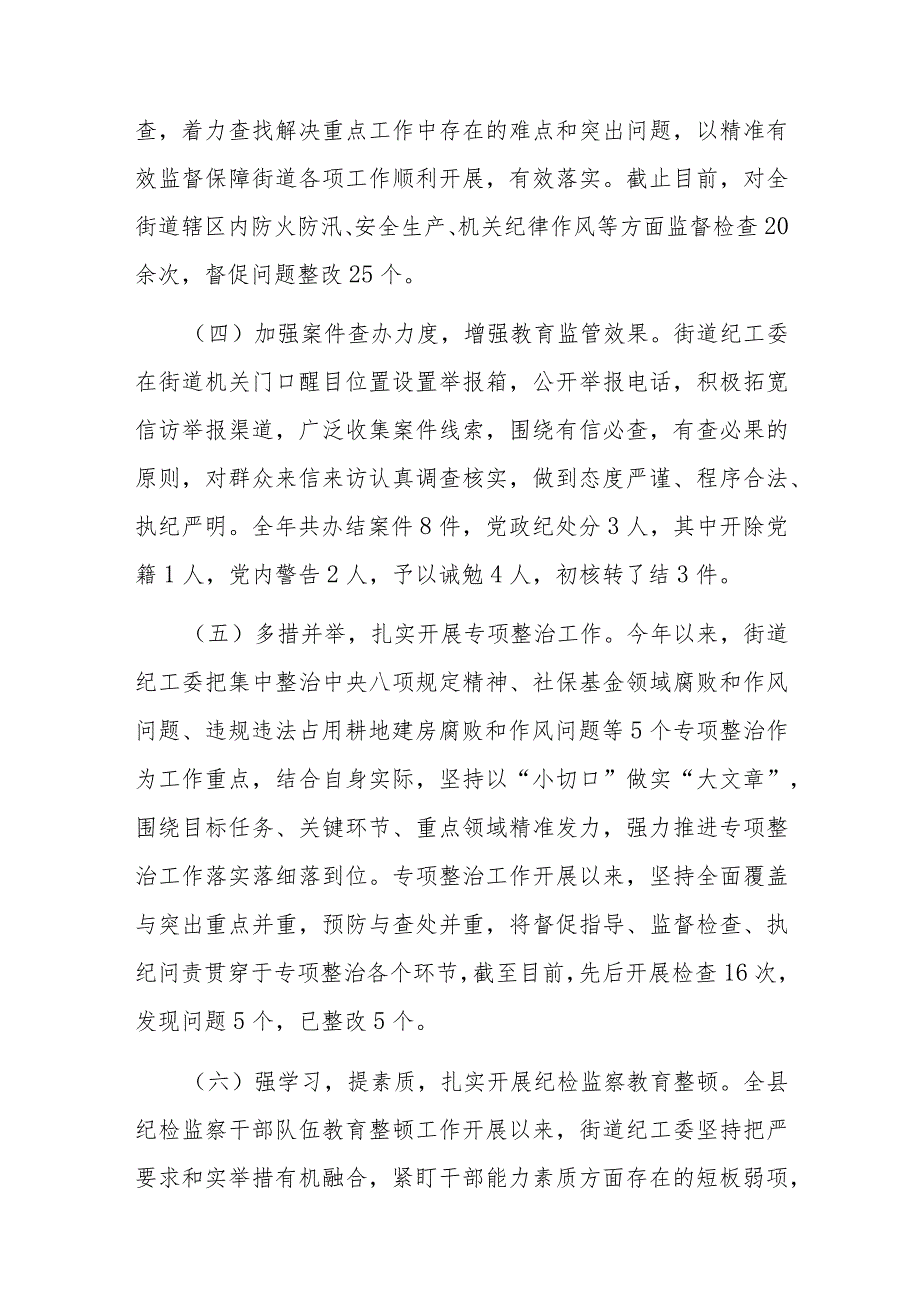 查，着力查找解决重点工作中存在的难点和突出问题，以精准有
效监督保障街道各项工作顺利开展，有效落实。截止目前，对全
街道辖区内防火防汛、安全生产、机关纪律作风等方面监督检查20
余次，督促问题整改25个。
（四）加强案件查办力度，增强教育监管效果。街道纪工委
在街道机关门口醒目位置设置举报箱，公开举报电话，积极拓宽
信访举报渠道，广泛收集案件线索，围绕有信必查，有查必果的
原则，对群众来信来访认真调查核实，做到态度严谨、程序合法、
执纪严明。全年共办结案件8件，党政纪处分3人，其中开除党
籍1人，党内警告2人，予以诫勉4人，初核转了结3件。
（五）多措并举，扎实开展专项整治工作。今年以来，街道
纪工委把集中整治中央八项规定精神、社保基金领域腐败和作风
问题、违规违法占用耕地建房腐败和作风问题等5个专项整治作
为工作重点，结合自身实际，坚持以“小切口”做实“大文章”，
围绕目标任务、关键环节、重点领域精准发力，强力推进专项整
治工作落实落细落到位。专项整治工作开展以来，坚持全面覆盖
与突出重点并重，预防与查处并重，将督促指导、监督检查、执
纪问责贯穿于专项整治各个环节，截至目前，先后开展检查16次，
发现问题5个，已整改5个。
（六）强学习，提素质，扎实开展纪检监察教育整顿。全县
纪检监察干部队伍教育整顿工作开展以来，街道纪工委坚持把严
要求和实举措有机融合，紧盯干部能力素质方面存在的短板弱项，